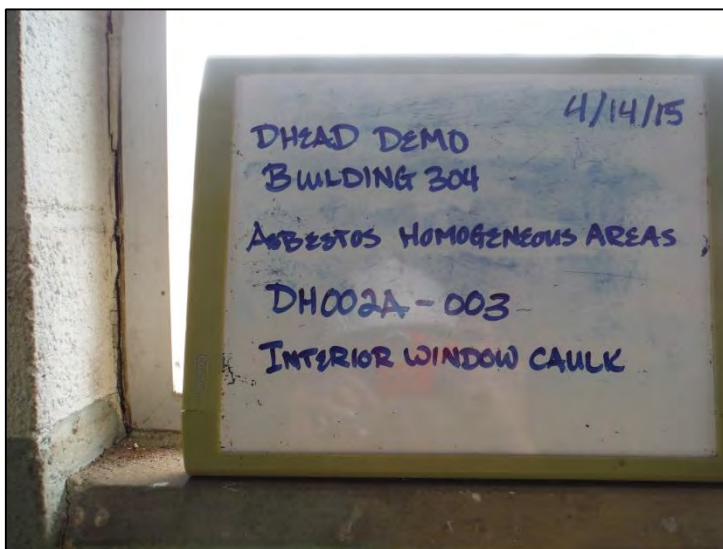 4/14/15
DHEAD DEMO
BUILDING 304
ASBESTOS HOMOGENEOUS AREAS
DH002A-003
INTERIOR WINDOW CAULK